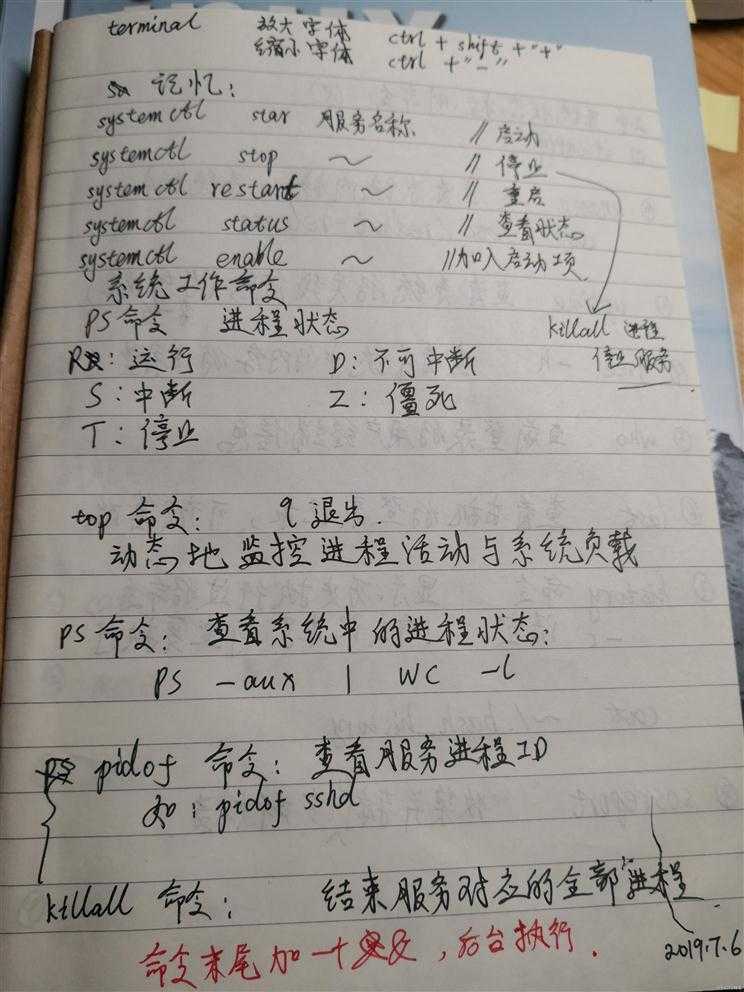 terminal 放大字体 ctrl + shift + "+"
缩小字体 ctrl + "-"
记忆:
systemctl star 服务名称 // 启动
systemctl stop ~ // 停止
systemctl restart ~ // 重启
systemctl status ~ // 查看状态
systemctl enable ~ //加入启动项
系统工作命令
PS命令 进程状态 killall 进程
R: 运行 D: 不可中断 停止服务
S: 中断 Z: 僵死
T: 停止
top 命令: q 退出.
动态地监控进程活动与系统负载
PS命令: 查看系统中的进程状态:
PS -aux | WC -l
pidof 命令: 查看服务进程ID
如: pidof sshd
killall 命令: 结束服务对应的全部进程
命令末尾加一个&, 后台执行.
2019.7.6